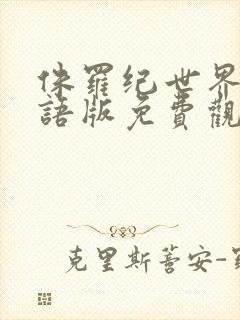 侏罗纪世界
語版免費觀
克里斯蒂安-罗